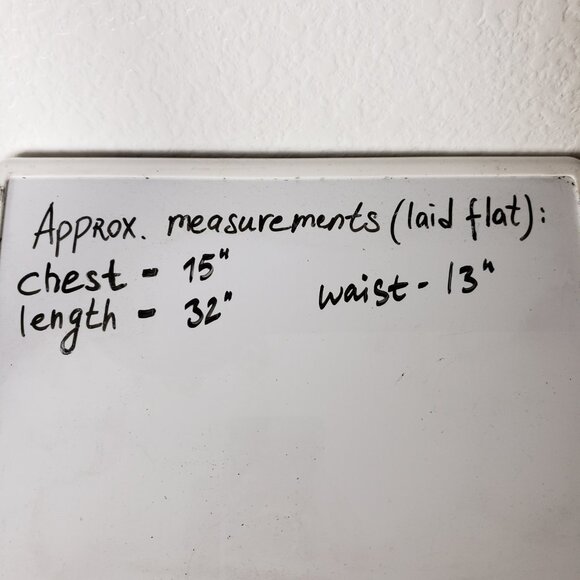 Approx. measurements (laid flat):
chest - 15"
length - 32"
waist - 13"